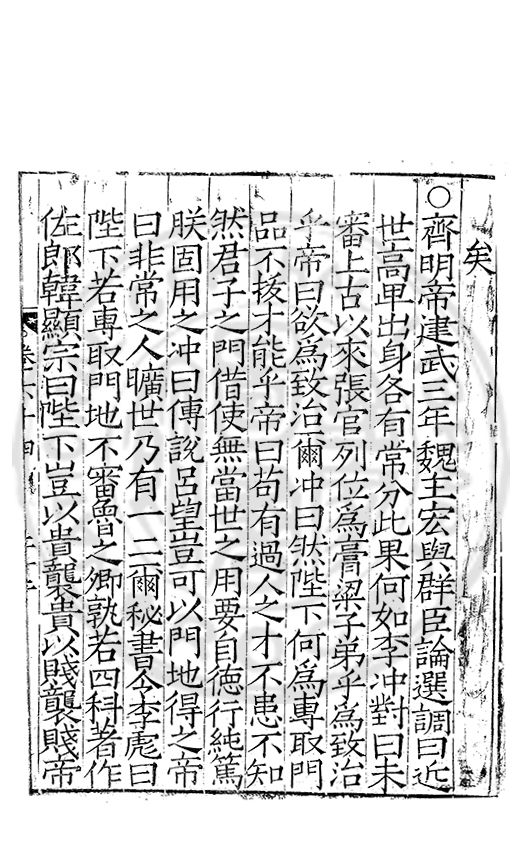 矣
○齊明帝建武三年魏主宏與群臣論選調曰近
世高卑出身各有常分此果何如李冲對曰未
審上古以來張官列位爲膏粱子弟乎爲致治
乎帝曰欲爲致治爾冲曰然陛下何爲專取門
品不拔才能乎帝曰苟有過人之才不患不知
然君子之門借使無當世之用要自德行純篤
朕固用之冲曰傅說呂望豈可以門地得之帝
曰非常之人曠世乃有一二爾秘書令李彪曰
陛下若專取門地不審魯之三卿孰若四科著作
佐郎韓顯宗曰陛下豈以貴襲貴以賤襲賤帝
卷六十四